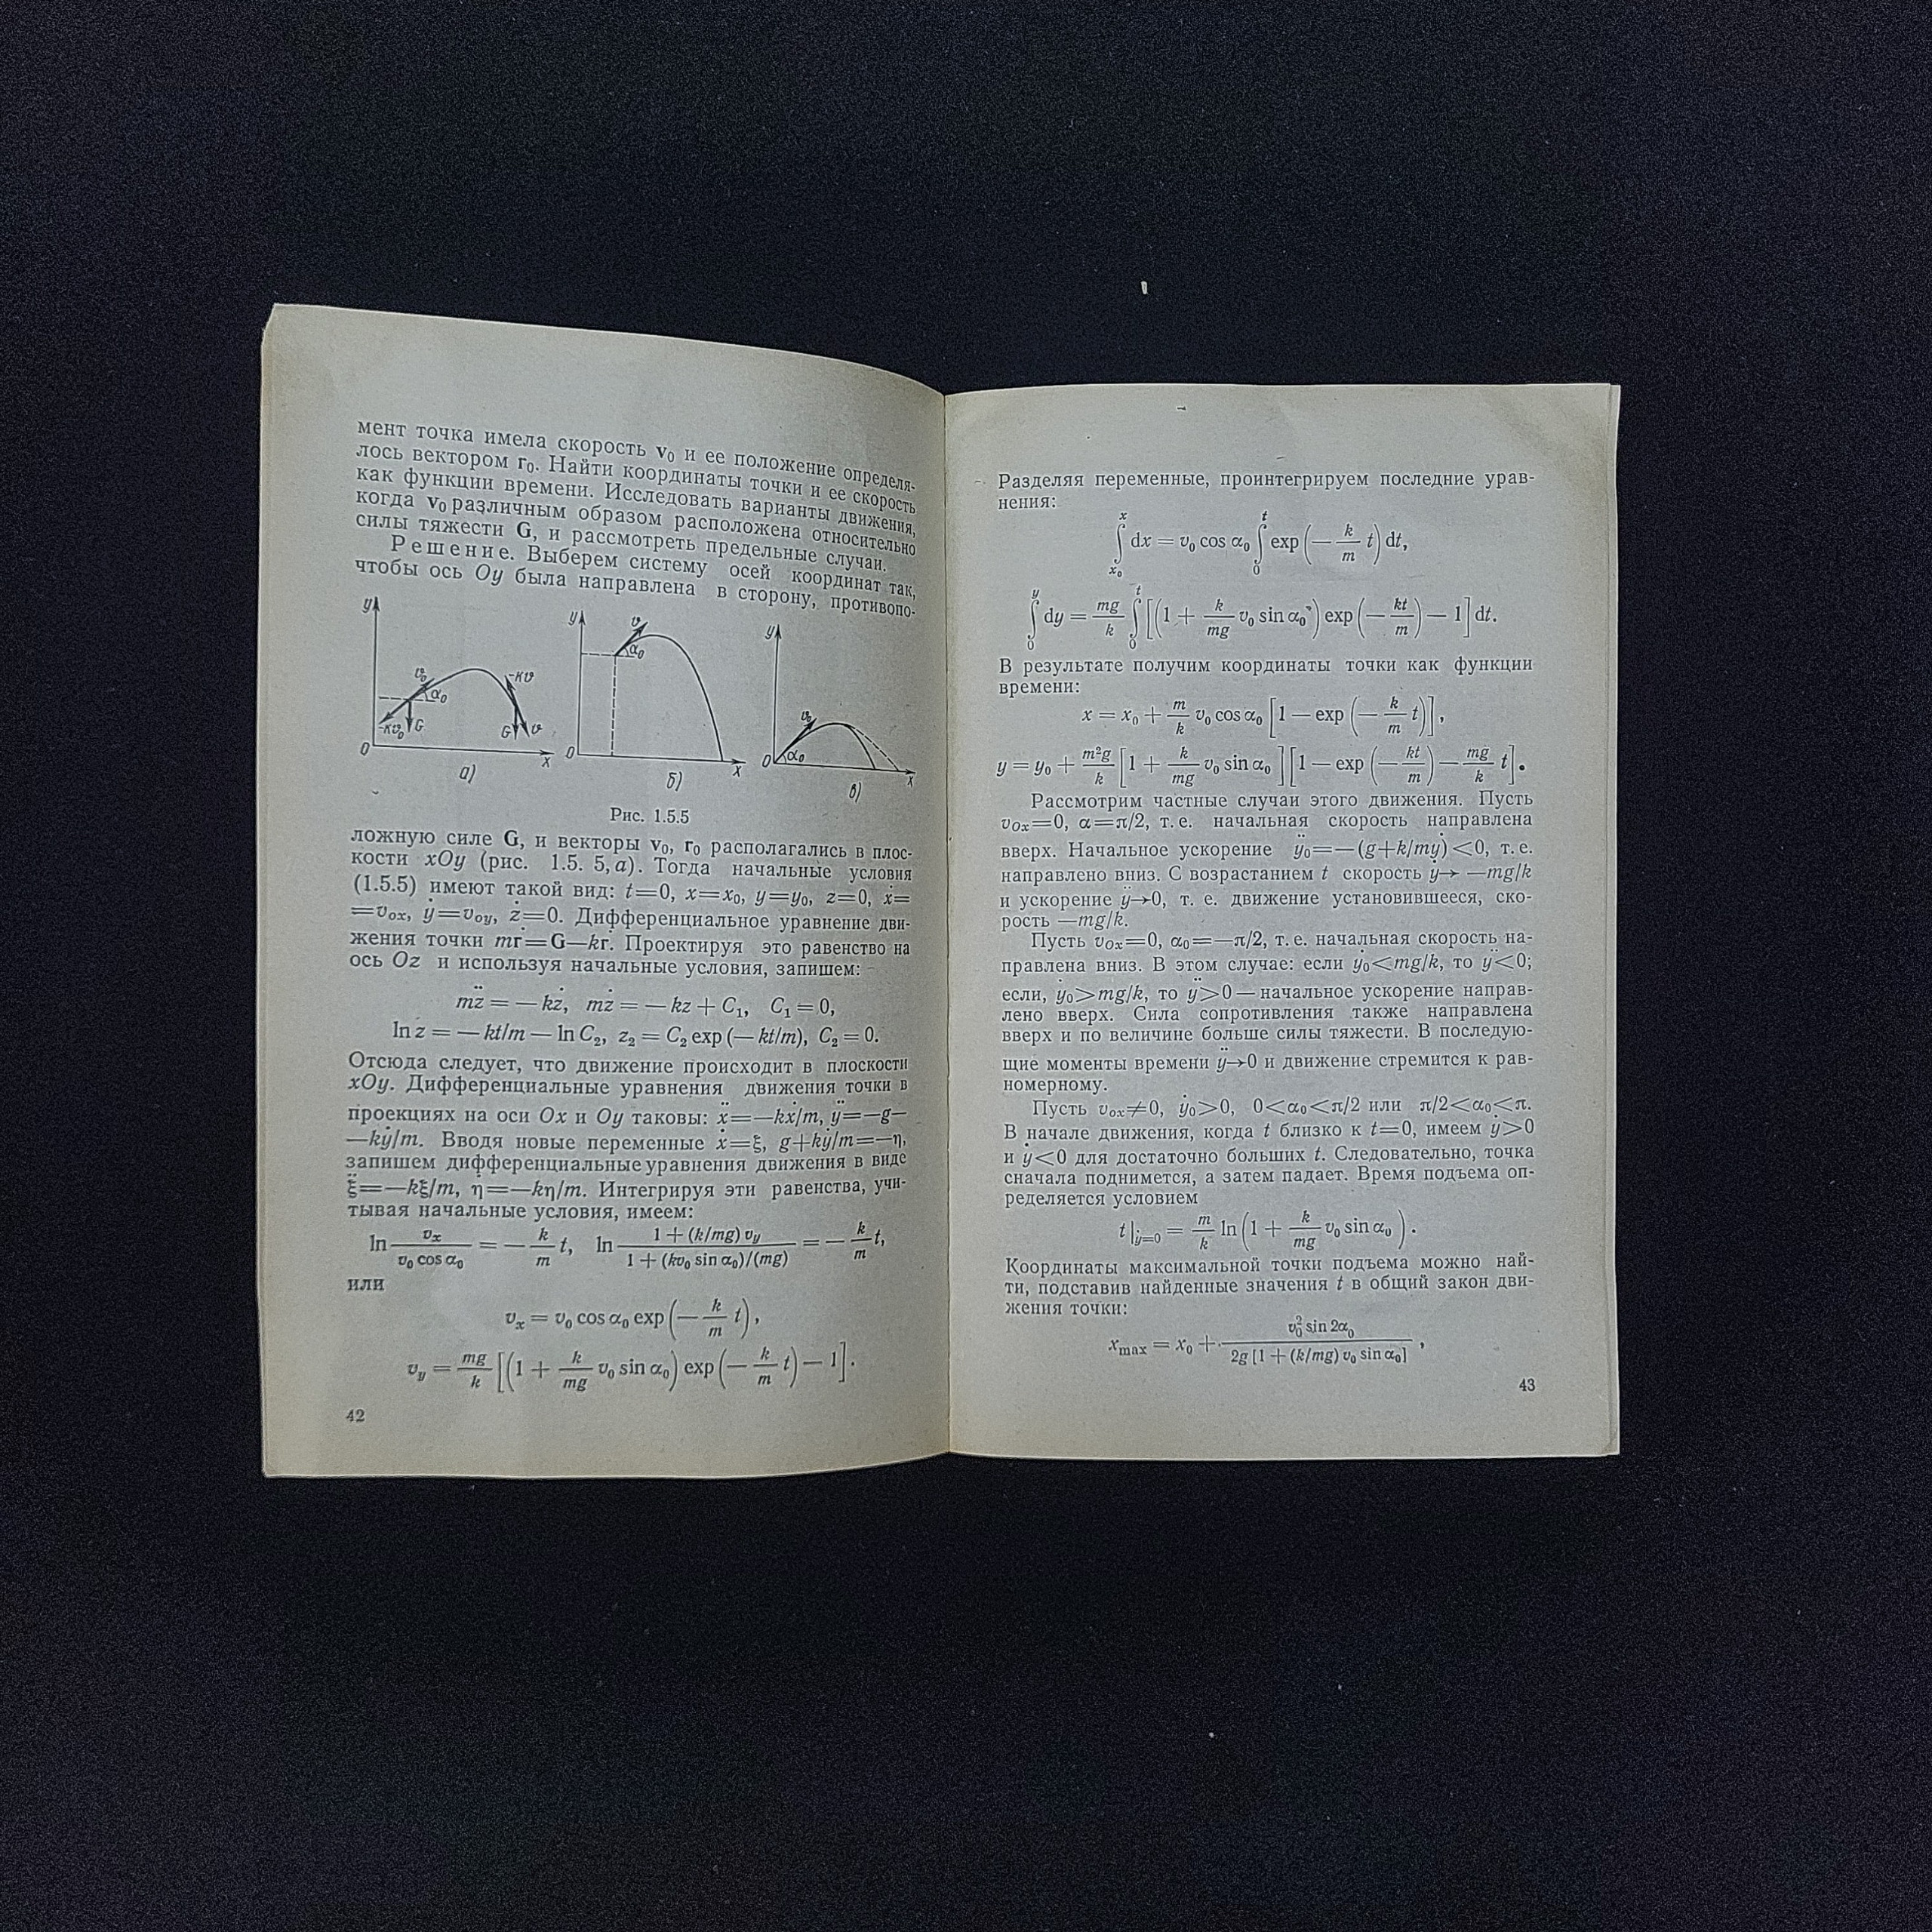 мент точка имела скорость v₀ и ее положение определя-
лось вектором r₀. Найти координаты точки и ее скорость
как функции времени. Исследовать варианты движения,
когда v₀ различным образом расположена относительно
силы тяжести G, и рассмотреть предельные случаи.
Решение. Выберем систему осей координат так,
чтобы ось Oy была направлена в сторону, противопо-
y v₀ α₀ -kv₀ G -kv G v O x а)
y v α₀ O x б)
y v₀ α₀ O x в)
Рис. 1.5.5
ложную силе G, и векторы v₀, r₀ располагались в плос-
кости xOy (рис. 1.5. 5, а). Тогда начальные условия
(1.5.5) имеют такой вид: t=0, x=x₀, y=y₀, z=0, ẋ=
=v₀ₓ, ẏ=v₀y, ż=0. Дифференциальное уравнение дви-
жения точки mr̈=G—kṙ. Проектируя это равенство на
ось Oz и используя начальные условия, запишем:
mz̈ = — kż, mż = — kz + C₁, C₁ = 0,
ln z = — kt/m — ln C₂, z₂ = C₂ exp (— kt/m), C₂ = 0.
Отсюда следует, что движение происходит в плоскости
xOy. Дифференциальные уравнения движения точки в
проекциях на оси Ox и Oy таковы: ẍ=—kẋ/m, ÿ=—g—
—kẏ/m. Вводя новые переменные ẋ=ξ, g+kẏ/m=—η,
запишем дифференциальные уравнения движения в виде
ξ̇=—kξ/m, η̇=—kη/m. Интегрируя эти равенства, учи-
тывая начальные условия, имеем:
ln vₓ/(v₀ cos α₀) = — (k/m) t, ln (1 + (k/mg) v_y)/(1 + (kv₀ sin α₀)/(mg)) = — (k/m) t,
или
vₓ = v₀ cos α₀ exp (— (k/m) t),
v_y = (mg/k) [(1 + (k/mg) v₀ sin α₀) exp (— (k/m) t) — 1].
42
Разделяя переменные, проинтегрируем последние урав-
нения:
∫ₓ₀ˣ dx = v₀ cos α₀ ∫₀ᵗ exp (— (k/m) t) dt,
∫₀ʸ dy = (mg/k) ∫₀ᵗ [(1 + (k/mg) v₀ sin α₀) exp (— kt/m) — 1] dt.
В результате получим координаты точки как функции
времени:
x = x₀ + (m/k) v₀ cos α₀ [1 — exp (— (k/m) t)],
y = y₀ + (m²g/k) [1 + (k/mg) v₀ sin α₀] [1 — exp (— kt/m) — (mg/k) t].
Рассмотрим частные случаи этого движения. Пусть
v₀ₓ=0, α=π/2, т.е. начальная скорость направлена
вверх. Начальное ускорение ÿ₀=—(g+k/mẏ)<0, т.е.
направлено вниз. С возрастанием t скорость ẏ→ —mg/k
и ускорение ÿ→0, т. е. движение установившееся, ско-
рость —mg/k.
Пусть v₀ₓ=0, α₀=—π/2, т.е. начальная скорость на-
правлена вниз. В этом случае: если ẏ₀<mg/k, то ÿ<0;
если, ẏ₀>mg/k, то ÿ>0 — начальное ускорение направ-
лено вверх. Сила сопротивления также направлена
вверх и по величине больше силы тяжести. В последую-
щие моменты времени ÿ→0 и движение стремится к рав-
номерному.
Пусть v₀ₓ≠0, ẏ₀>0, 0<α₀<π/2 или π/2<α₀<π.
В начале движения, когда t близко к t=0, имеем ẏ>0
и ẏ<0 для достаточно больших t. Следовательно, точка
сначала поднимется, а затем падает. Время подъема оп-
ределяется условием
t|ẏ=0 = (m/k) ln (1 + (k/mg) v₀ sin α₀).
Координаты максимальной точки подъема можно най-
ти, подставив найденные значения t в общий закон дви-
жения точки:
x_max = x₀ + v₀² sin 2α₀/(2g [1 + (k/mg) v₀ sin α₀]),
43